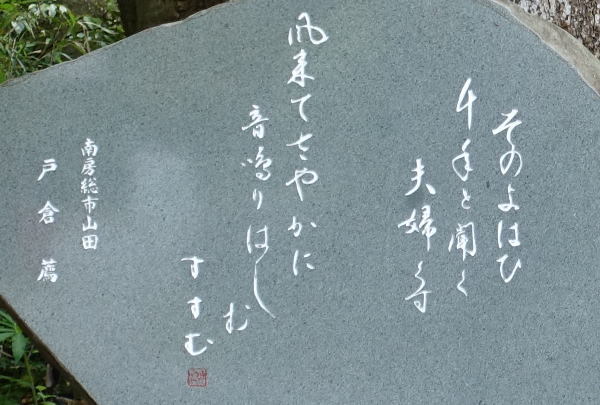 そのよはひ
千年と聞く
夫婦くす
風来てさやかに
音鳴りはしむ
すすむ
南房総市山田
戸倉 薦